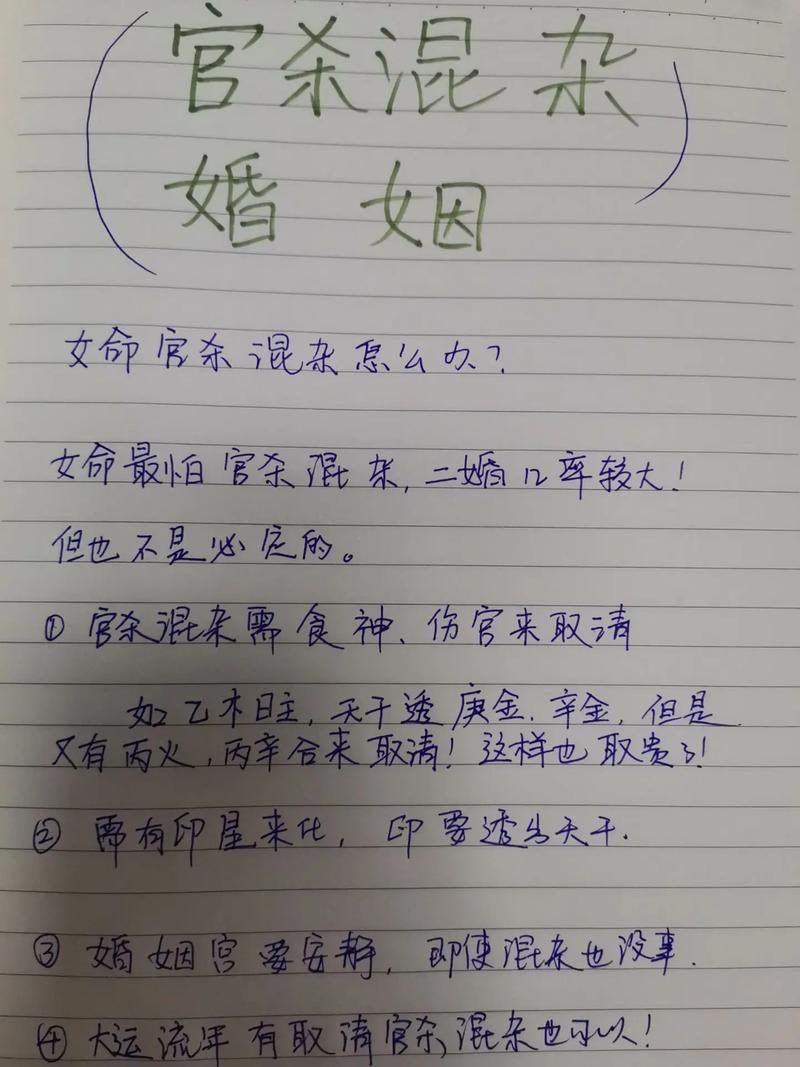 官杀混杂
婚姻
女命官杀混杂怎么办？
女命最怕官杀混杂，二婚几率较大！
但也不是必定的。
① 官杀混杂需食神、伤官来取清
如乙木日主，天干透庚金．辛金，但是
又有丙火，丙辛合来取清！这样也取贵了！
② 需有印星来化，印要透出天干．
③ 婚姻宫要安静，即使混杂也没事．
④ 大运流年有取清官杀，混杂也可以！